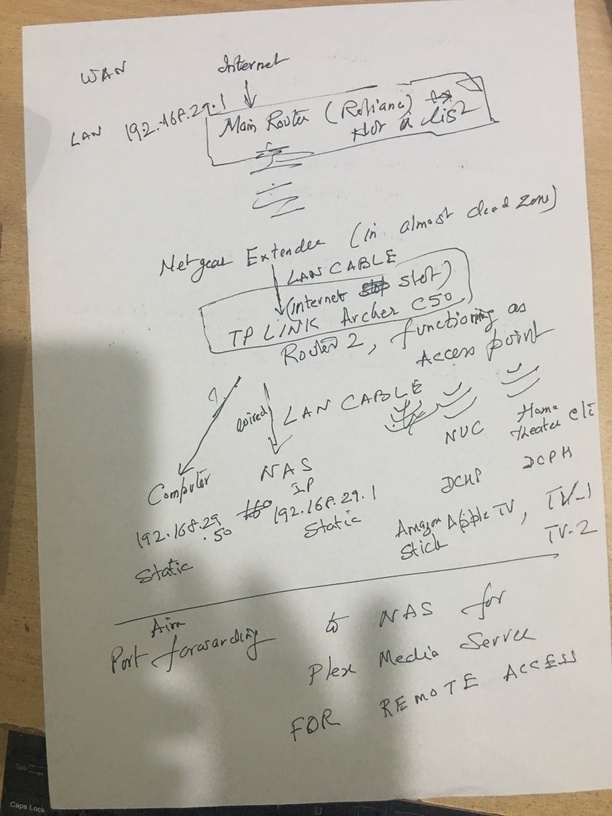 WAN
Internet
LAN 192.168.29.1
Main Router (Reliance)
Not a list
Netgear Extender (in almost dead zone)
LAN CABLE
(internet slot)
TP LINK Archer C50
Router 2, functioning as
Access point
?
wired
LAN CABLE
Computer
NAS
IP
NUC
Home
theater etc
192.168.29
.50
192.168.29.1
DCHP
DCPH
Static
Static
Amazon
Stick
Apple TV,
TV-1
TV-2
Aim
Port forwarding to NAS for
Plex Media Server
FOR REMOTE ACCESS
Caps Lock